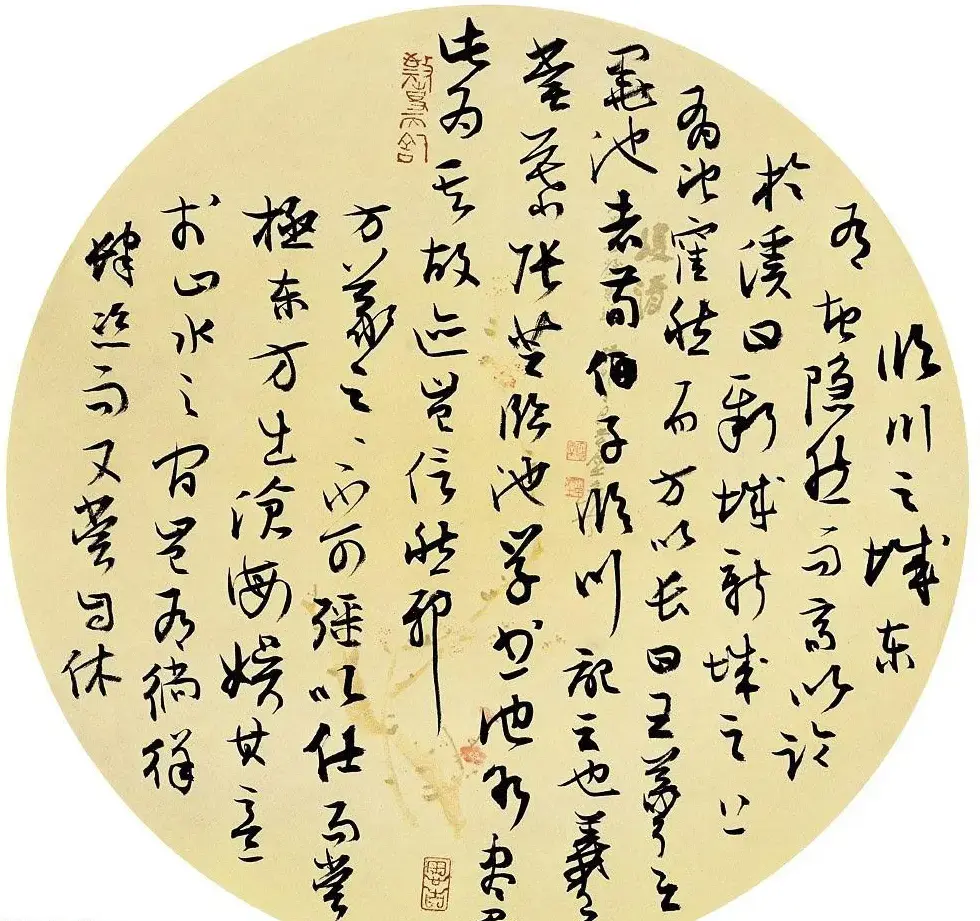 临川之城东
有地隐然而高以临
於溪曰新城新城之上
有池窪然而方以长曰王羲之之
墨池者荀伯子临川记云也羲之
尝慕张芝临池学书池水尽
此为其故迹岂信然邪
方羲之之不可强以仕而尝
極东方出沧海娱其意
於山水之间岂有徜徉
肆恣而又尝自休